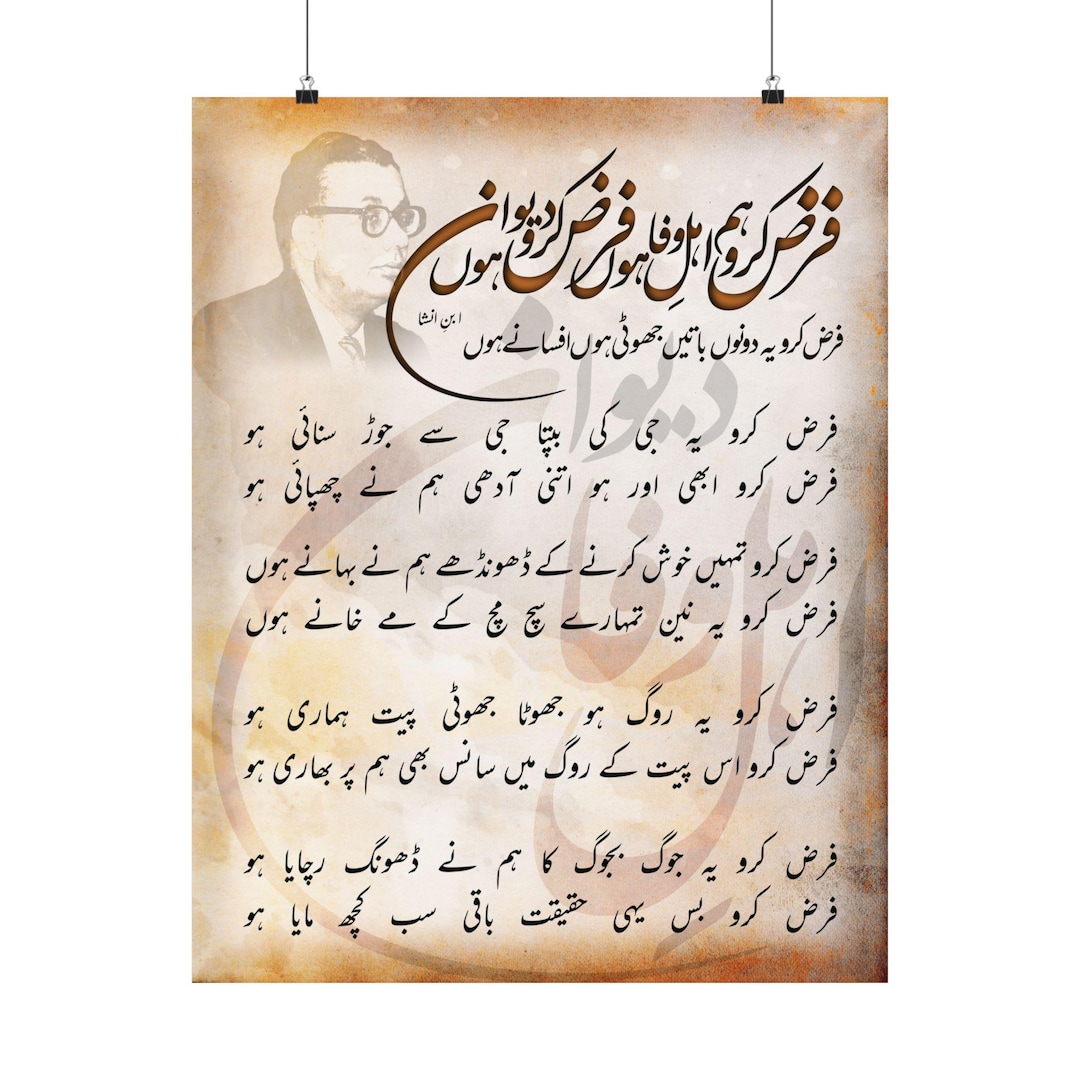 فرض کرو ہم اہلِ وفا ہوں فرض کرو دیوانے ہوں
ابنِ انشا
فرض کرو یہ دونوں باتیں جھوٹی ہوں افسانے ہوں
فرض کرو یہ جی کی بپتا جی سے جوڑ سنائی ہو
فرض کرو ابھی اور ہو اتنی آدھی ہم نے چھپائی ہو
فرض کرو تمہیں خوش کرنے کے ڈھونڈھے ہم نے بہانے ہوں
فرض کرو یہ نین تمہارے سچ مچ کے مے خانے ہوں
فرض کرو یہ روگ ہو جھوٹا جھوٹی پیت ہماری ہو
فرض کرو اس پیت کے روگ میں سانس بھی ہم پر بھاری ہو
فرض کرو یہ جوگ بجوگ کا ہم نے ڈھونگ رچایا ہو
فرض کرو بسِ یہی حقیقت باقی سب کچھ مایا ہو